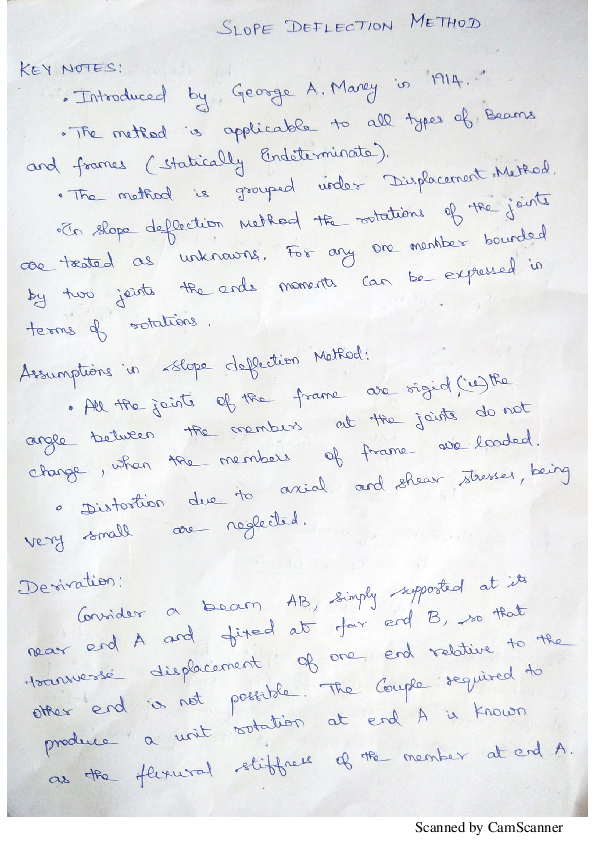 SLOPE DEFLECTION METHOD
KEY NOTES:
• Introduced by George A. Maney in 1914.
• The method is applicable to all types of Beams
and frames (statically Indeterminate).
• The method is grouped under Displacement Method.
• In slope deflection Method the rotations of the joints
are treated as unknowns. For any one member bounded
by two joints the ends moments can be expressed in
terms of rotations.
Assumptions in slope deflection Method:
• All the joints of the frame are rigid, (ie) the
angle between the members at the joints do not
change, when the members of frame are loaded.
• Distortion due to axial and shear stresses, being
very small are neglected.
Derivation:
Consider a beam AB, simply supported at its
near end A and fixed at far end B, so that
transverse displacement of one end relative to the
other end is not possible. The Couple required to
produce a unit rotation at end A is known
as the flexural stiffness of the member at end A.
Scanned by CamScanner